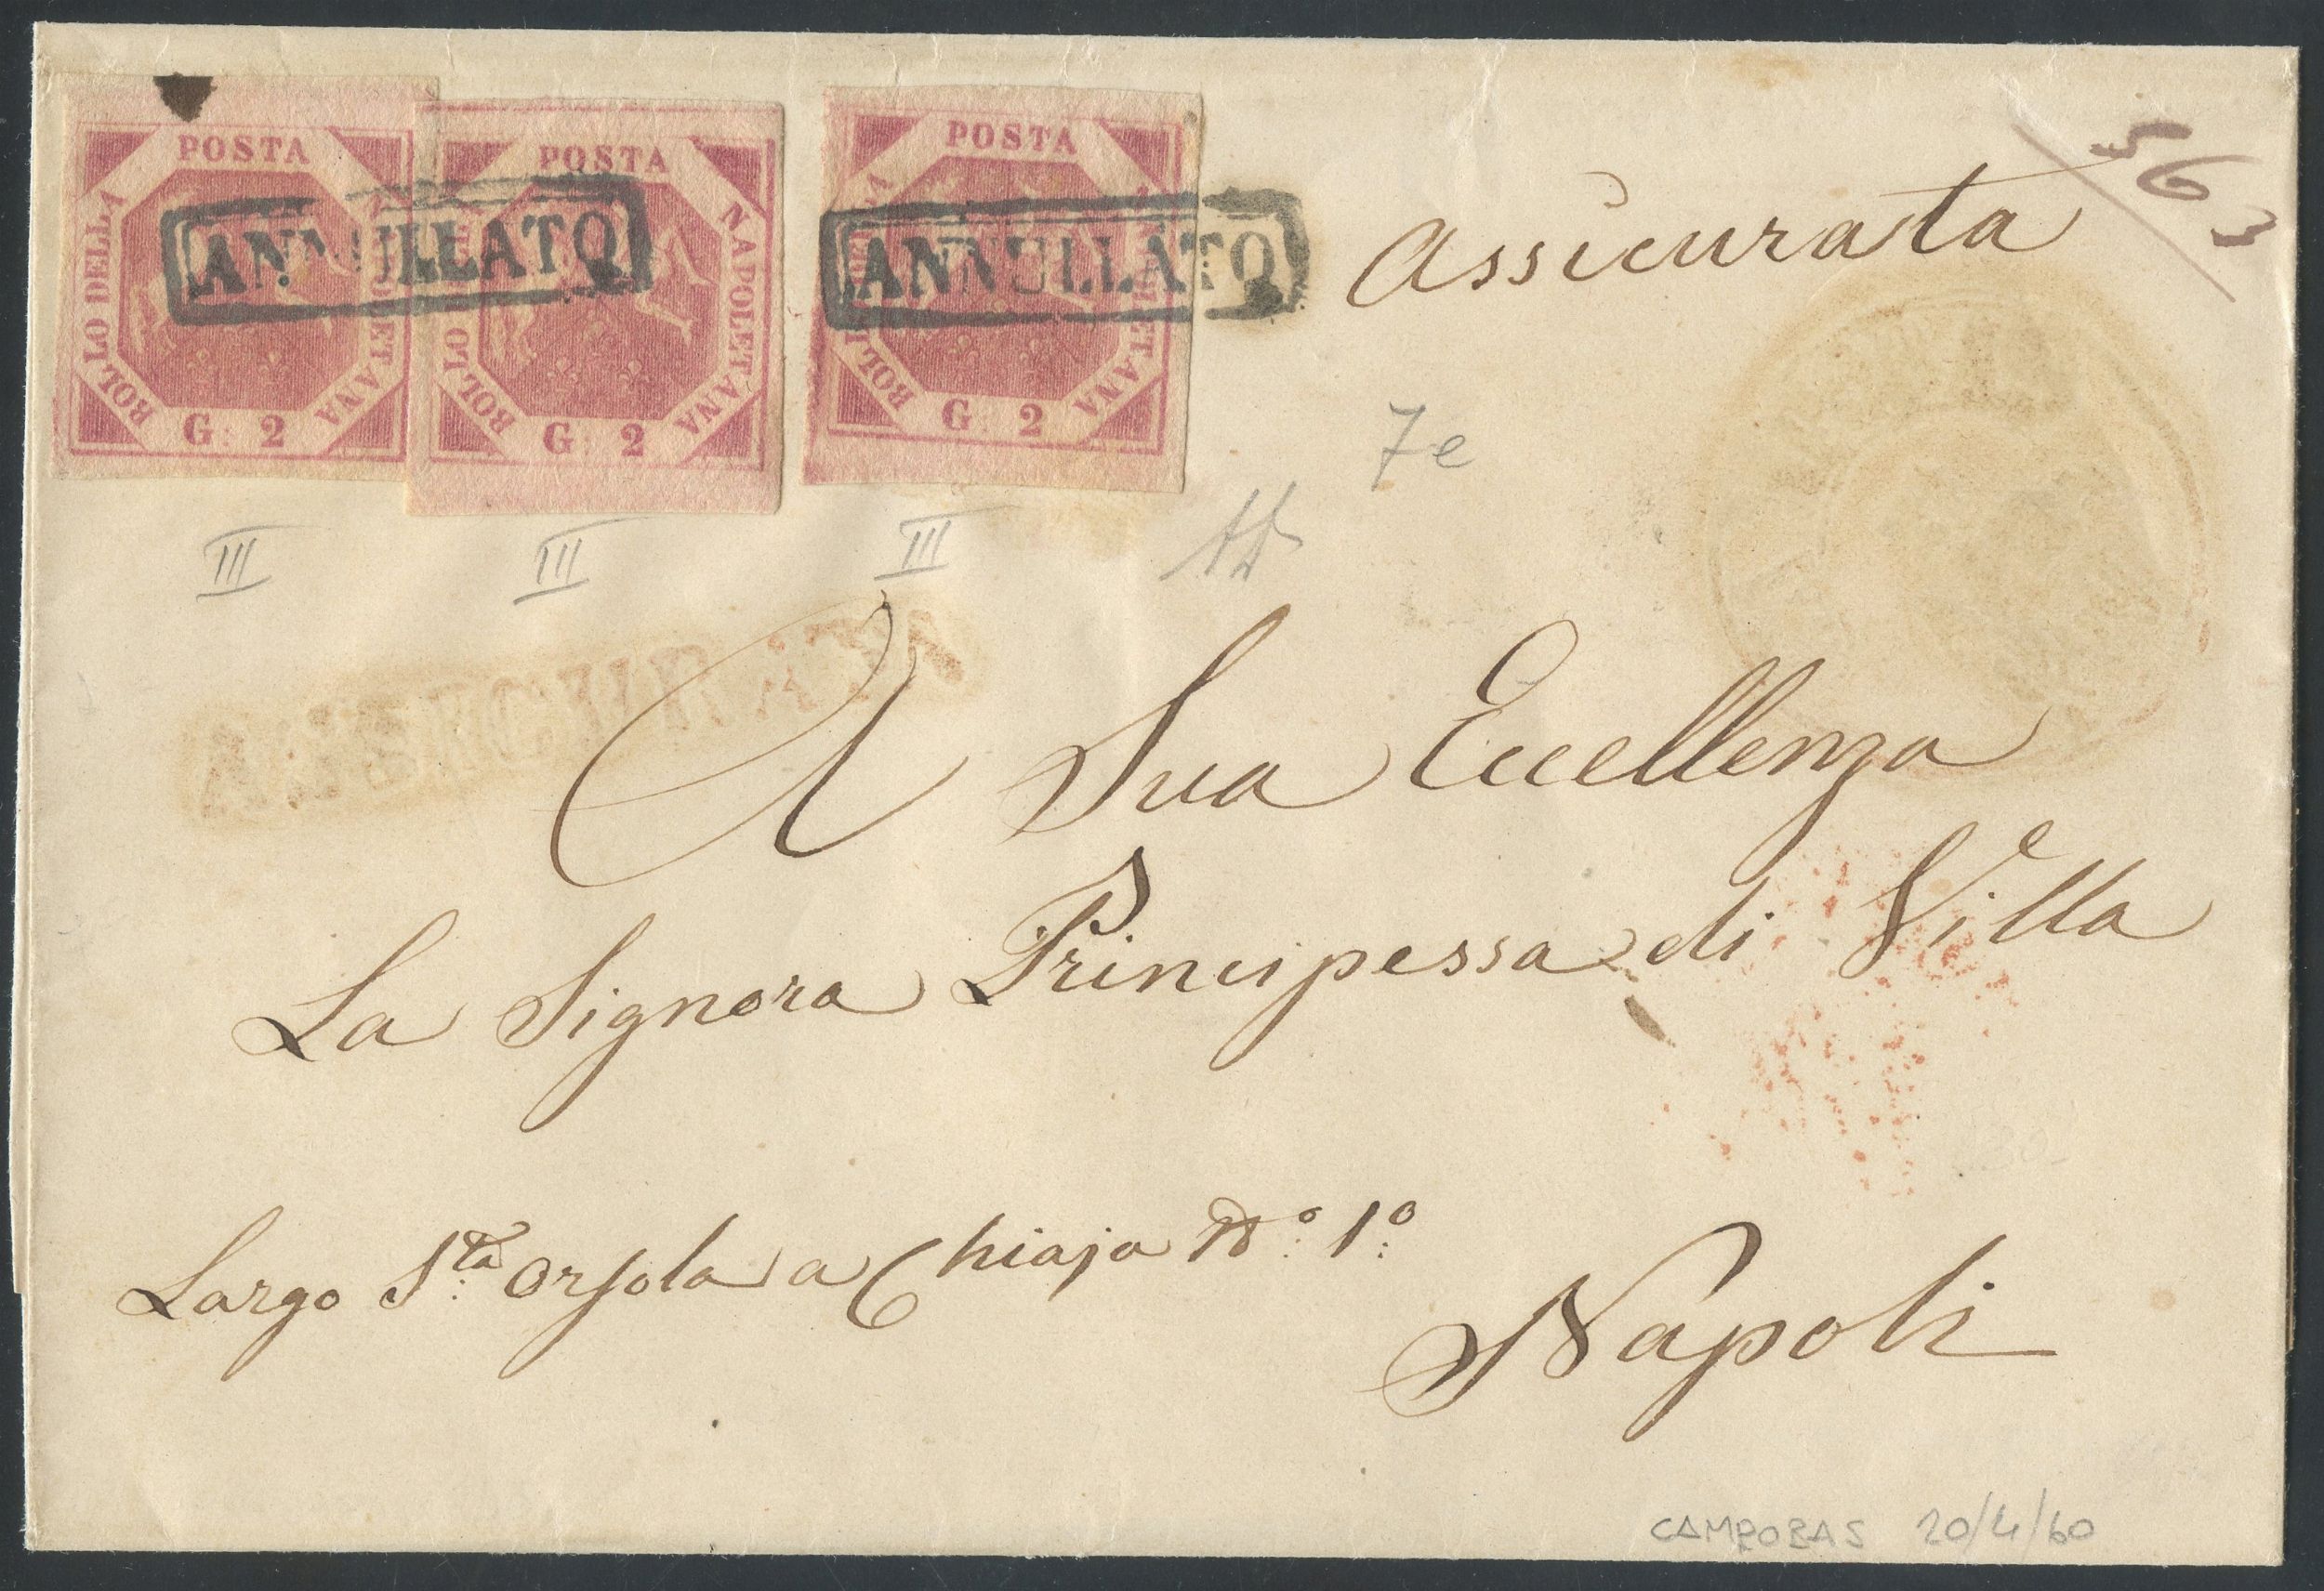 POSTA
BOLLO DELLA
NAPOLETANA
G: 2
POSTA
BOLLO
NAPOLETANA
G: 2
POSTA
BOLLO DELLA
NAPOLETANA
G: 2
ANNULLATO
ANNULLATO
Assicurata
563
7e
III III III
ASSICURATA
A Sua Eccellenza
La Signora Principessa di Villa
Largo S.ta Orsola a Chiaja N.° 1.°
Napoli
CAMPOBAS 20/4/60